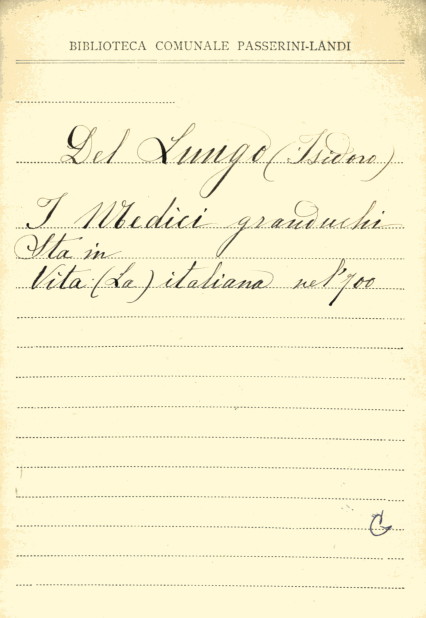 BIBLIOTECA COMUNALE PASSERINI-LANDI
Del Lungo (Isidoro)
I Medici granduchi
Sta in
Vita (La) italiana nel '700
G